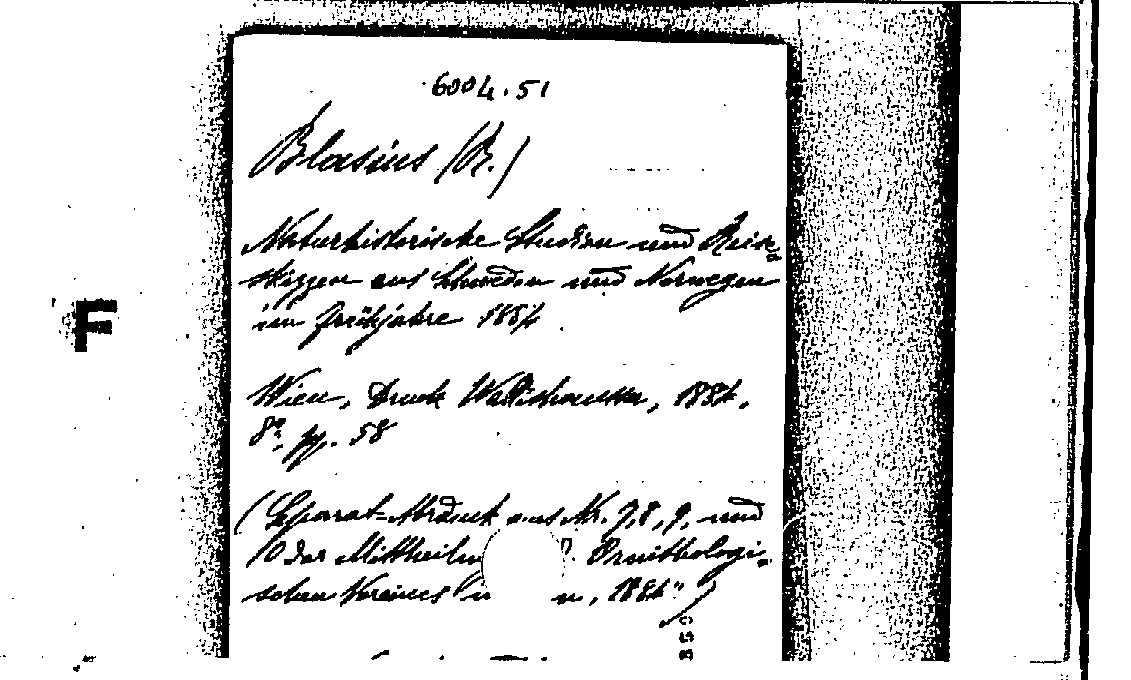 6004.51
Blasius (R.)
Naturhistorische Studien und Reise
skizzen aus Schweden und Norwegen
im Frühjahre 1884
F
Wien, Druck Wallishausser, 1884.
8º. pp. 58
(Separat-Abdruck aus Nr. 7, 8, 9, und
10 der Mittheilu Ornithologi-
schen Vereines in n, 1884")